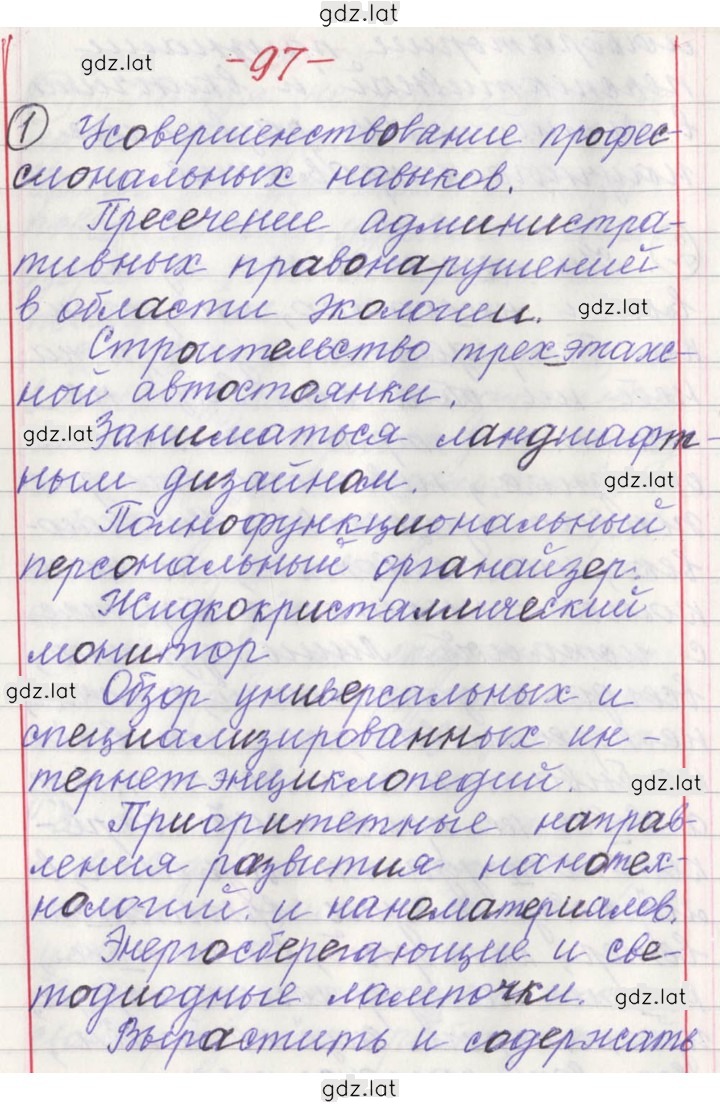 gdz.lat
gdz.lat
-97-
① Усовершенствование профес-
сиональных навыков.
Пресечение администра-
тивных правонарушений
в области экологии.
gdz.lat
Строительство трех_этаж-
ной автостоянки.
gdz.lat
Заниматься ландшафт-
ным дизайном.
gdz.lat
Полнофункциональный
персональный органайзер.
Жидкокристаллический
монитор
gdz.lat
Обзор универсальных и
специализированных ин-
тернет энциклопедий.
gdz.lat
Приоритетные направ-
ления развития нанотех-
нологий. и наноматериалов.
Энергосберегающие и све-
тодиодные лампочки.
gdz.lat
Вырастить и содержать
gdz.lat